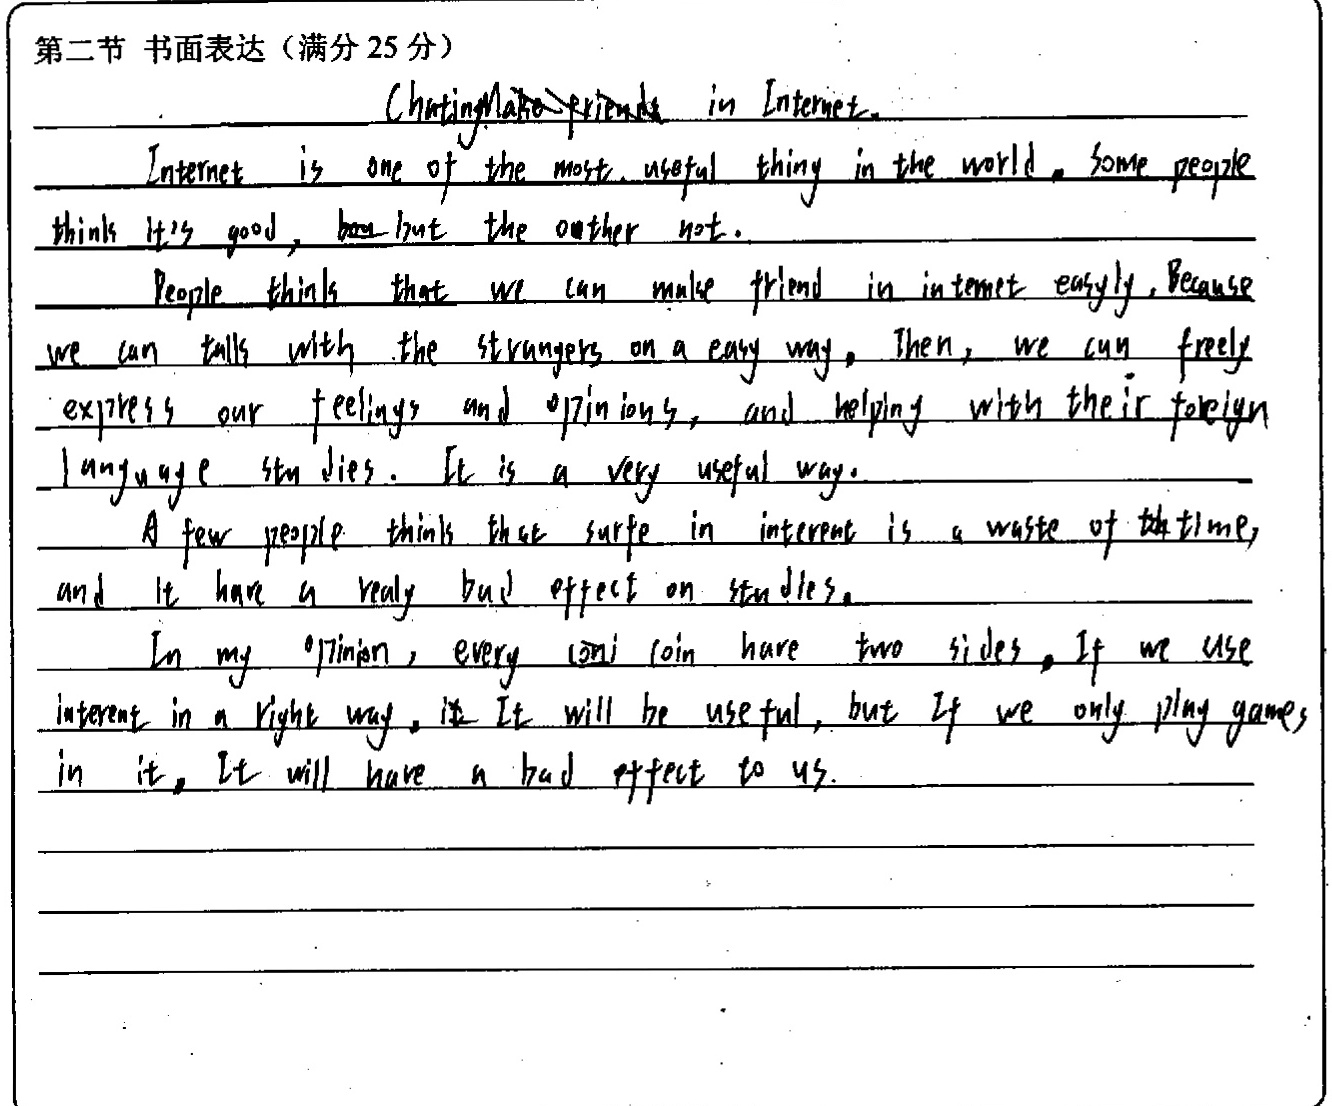 第二节 书面表达（满分 25 分）
Chating in Internet.
Internet is one of the most useful thing in the world. Some people
think it's good, but the outher not.
People think that we can make friend in internet easyly. Because
we can talk with the strangers on a easy way. Then, we can freely
express our feelings and opinions, and helping with their foreign
language studies. It is a very useful way.
A few people think that surfe in interent is a waste of time,
and it have a realy bad effect on studies.
In my opinion, every coin have two sides. If we use
interent in a right way. It will be useful, but If we only play games
in it. It will have a bad effect to us.